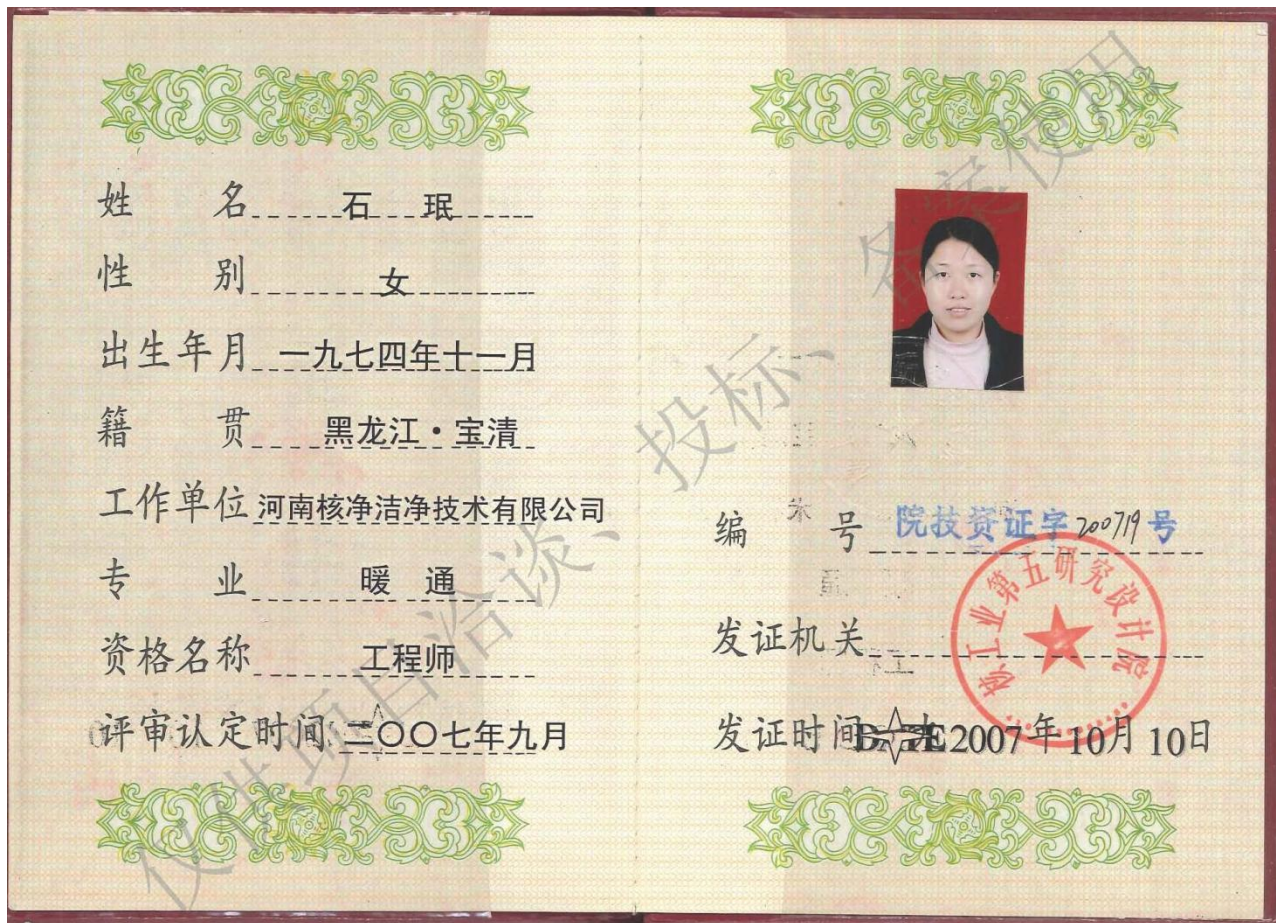 姓名 石珉
性别 女
出生年月 一九七四年十一月
籍贯 黑龙江·宝清
工作单位 河南核净洁净技术有限公司
专业 暖通
资格名称 工程师
评审认定时间 二〇〇七年九月
编号 院技资证字200719号
发证机关
核工业第五研究设计院
发证时间 2007年10月10日
仅供项目洽谈、投标、备案使用